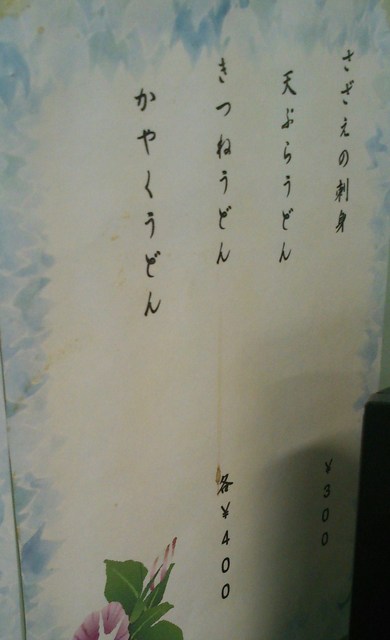 さざえの刺身 ¥300
天ぷらうどん
きつねうどん 各¥400
かやくうどん